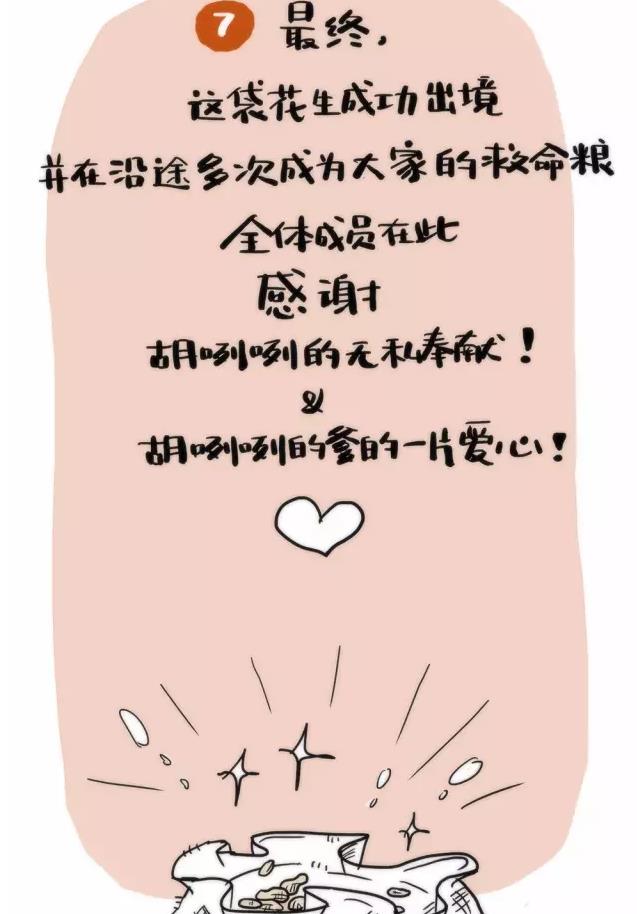 7 最终,
这袋花生成功出境
并在沿途多次成为大家的救命粮
全体成员在此
感谢
胡咧咧的无私奉献！
&
胡咧咧的爹的一片爱心！